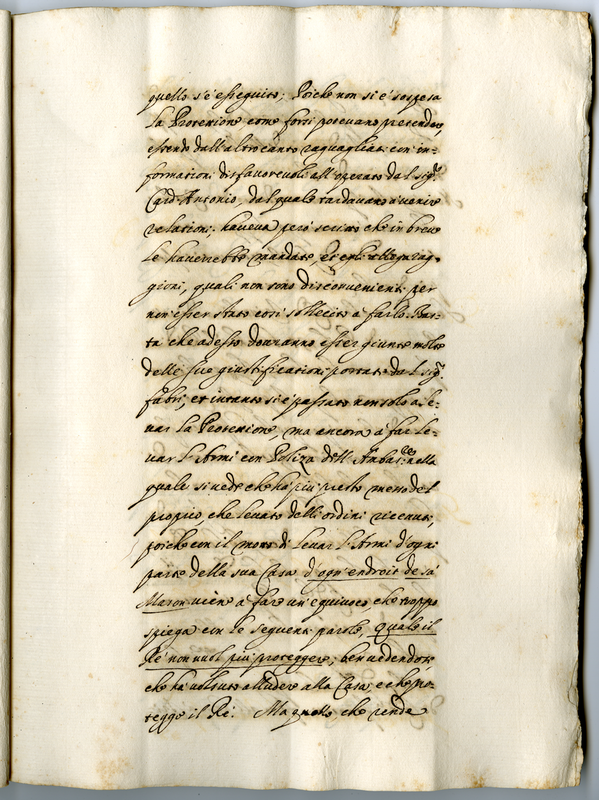 quello s'è esseguito; Poiche non si è sospesa
la Protetione come forsi potevano pretender,
essendo dall'altro canto raguagliati con in=
formationi disfavorevoli all'operato dal sig.r
Card. Antonio, dal quale tardavano à venire
relationi; haveva però scritto che in breve
le haverebbe mandate, et egli allega rag=
gioni, quali non sono disconvenienti per
non esser stato così sollecito à farlo. Bas=
ta che adesso dovranno esser giunte molte
delle sue giustificationi portate dal sig.r
fabri, et intanto si è passato non solo a le=
var la Protetione, ma ancora à far le=
var l'Armi con Poliza dell'Ambas.re nella
quale si vede che hà più presto messo del
proprio, che levato delli ordini ricevuti,
poiche con il moto di levar l'Armi d'ogni
parte della sua Casa d'ogn'endroit de sa
Maison viene à fare un'equivoco, che troppo
spiega con le seguenti parole, quale il
Rè non vuol più proteggere, ben vedendosi
che hà voluto alludere alla Casa, e che pro=
tegge il Rè. Ma quello che rende